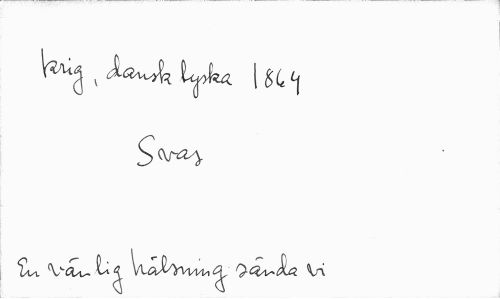 krig, dansk tyska 1864
Svas
En vänlig hälsning sända vi